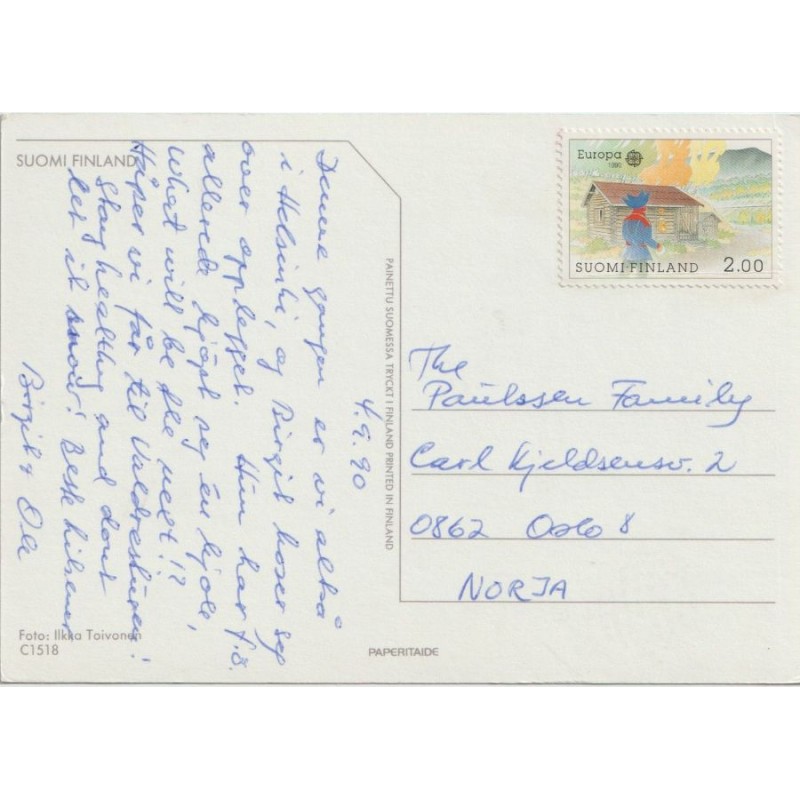 SUOMI FINLAND
4.9.90
Denne gangen er vi altså
i Helsinki, og Birgit koser seg
over opplegget. Hun har f.ö.
allerede kjöpt seg en kjole,
what will be the next!?
Håper vi får til Valdresturen!
Stay healthy and dont
let it snow! Beste hilsener
Birgit & Ole
Foto: Ilkka Toivonen
C1518
PAINETTU SUOMESSA TRYCKT I FINLAND PRINTED IN FINLAND
PAPERITAIDE
Europa
1990
SUOMI FINLAND 2.00
The
Paulssen Family
Carl Kjeldsensv. 2
0862 Oslo 8
NORJA